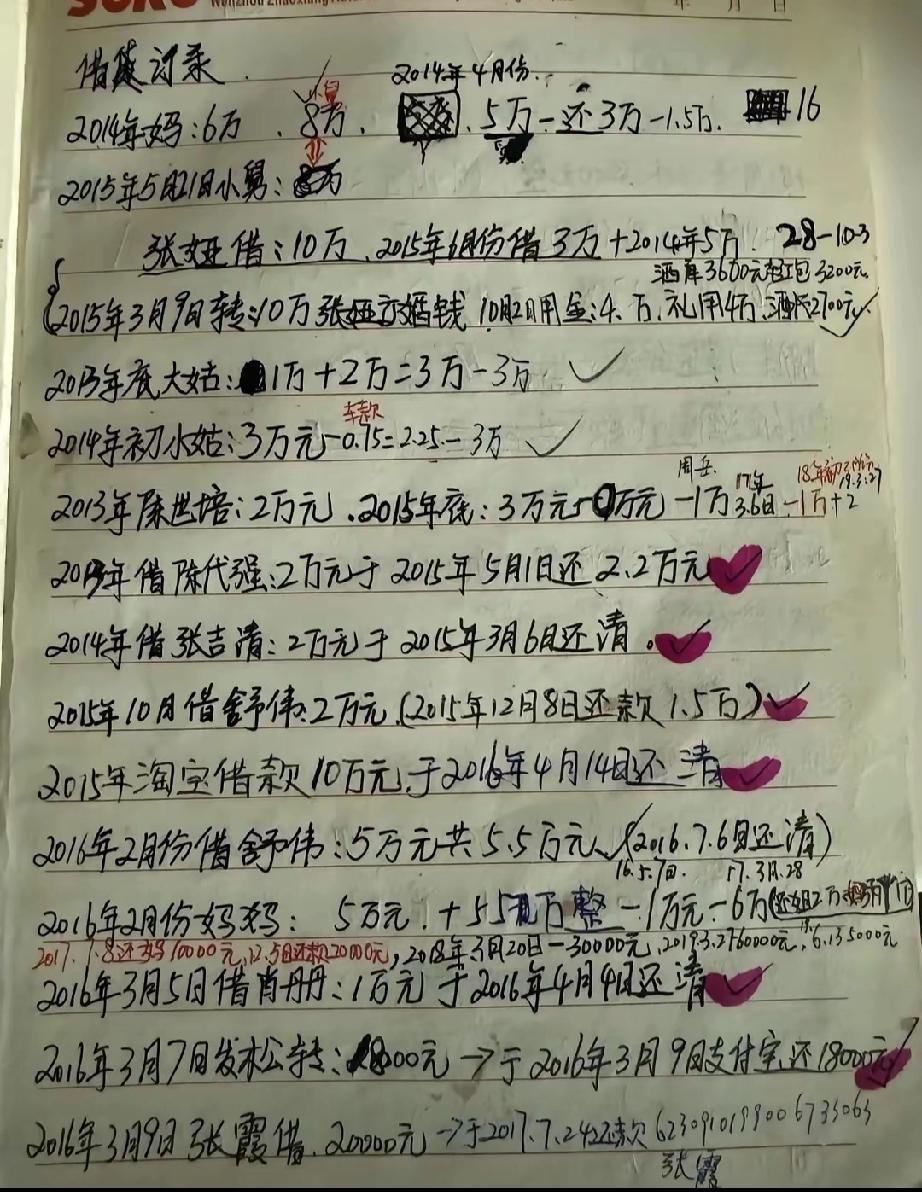 年 月 日
借贷记录
2014年4月份.
2014年妈:6万 、8万、 5万-还3万-1.5万. 16
2015年5月21日小舅:
张娅借:10万、2015年6月份借3万+2014年5万. 28-10-3
酒席3600元 红包3200元
2015年3月9日转:10万张娅 钱 10月2日用金:4.万、礼用4万、酒 2700元
2013年底大姑: 1万+2万=3万-3万
车款
2014年初小姑:3万元-0.75=2.25-3万
周岳 17年 18年初
2013年陈世培:2万元、2015年底:3万元 万元-1万 3.6日-1万+2
2013年借陈代强:2万元于2015年5月1日还2.2万元
2014年借张吉清:2万元于2015年3月6日还清。
2015年10月借舒伟:2万元(2015年12月8日还款1.5万)
2015年淘宝借款10万元,于2016年4月14日还清
2016年2月份借舒伟:5万元共5.5万元、(2016.7.6日还清)
16.5.7日. 17.3月.28
2016年2月份妈妈: 5万元.+5 万整-1万元-6万
2017.7.8还妈10000元,12.5日还款20000元,2018年3月20日-30000元,
2016年3月5日借肖丹丹:1万元于2016年4月4日还清
2016年3月7日发 公转: 8000元→于2016年3月9日支付宝还18000元
2016年3月9日张霞借.20000元→于2017.7.24还款6230910199006733063
张霞